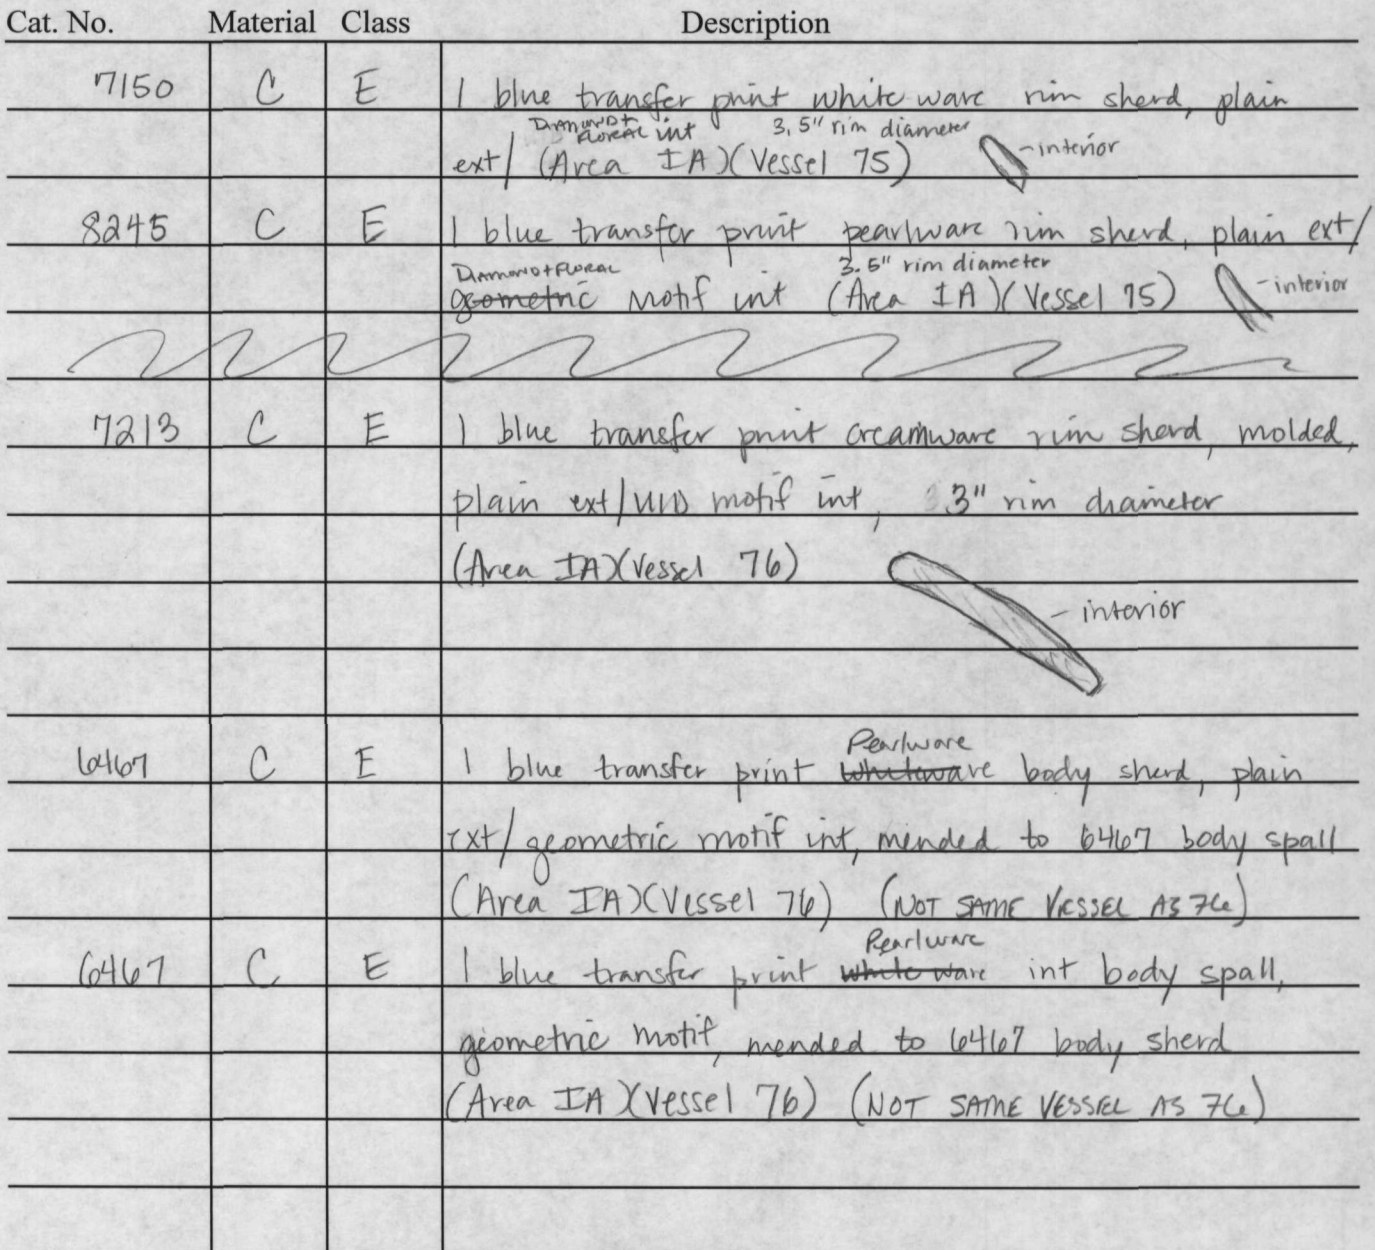 Cat. No. Material Class Description
7150 C E 1 blue transfer print white ware rim sherd, plain
DIAMOND + FLORAL int 3.5" rim diameter
ext/ (Area IA)(Vessel 75) - interior
8245 C E 1 blue transfer print pearlware rim sherd, plain ext/
DIAMOND + FLORAL 3.5" rim diameter
geometric motif int (Area IA)(Vessel 75) - interior
7213 C E 1 blue transfer print creamware rim sherd, molded,
plain ext/UID motif int, 3" rim diameter
(Area IA)(Vessel 76)
- interior
Pearlware
6467 C E 1 blue transfer print whiteware body sherd, plain
ext/geometric motif int, mended to 6467 body spall
(Area IA)(Vessel 76) (NOT SAME VESSEL AS 76)
Pearlware
6467 C E 1 blue transfer print white ware int body spall,
geometric motif, mended to 6467 body sherd
(Area IA)(Vessel 76) (NOT SAME VESSEL AS 76)